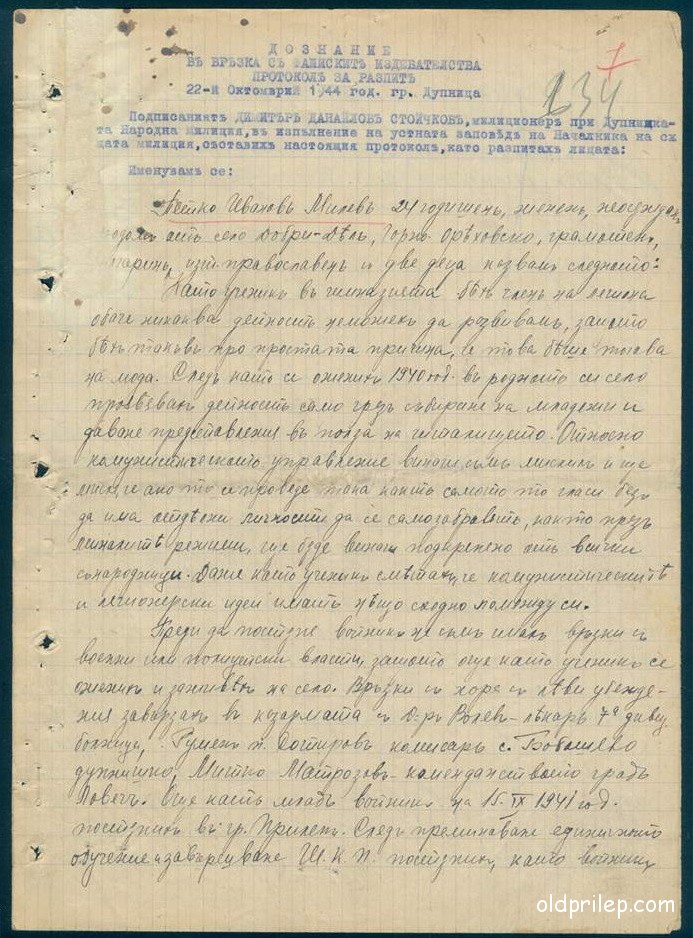 ДОЗНАНИЕ
ВЪ ВРЪЗКА СЪ ФАШИСКИТѢ ИЗДЕВАТЕЛСТВА
ПРОТОКОЛЪ ЗА РАЗПИТЪ
22-й Октомврий 1944 год. гр. Дупница
1
234
Подписаниятъ ДИМИТЪРЪ ДАНАИЛОВЪ СТОЙЧКОВЪ, милиционеръ при Дупнишка-
та Народна Милиция, въ изпълнение на устната заповѣдь на Началника на сѫ
щата милиция, съставихъ настоящия протоколъ, като разпитахъ лицата:
Именувамъ се:
Петко Ивановъ Милевъ 24 годишенъ, жененъ, неосѫждан
родомъ отъ село Добри-Дѣлъ, Горно Орѣховско, грамотенъ,
изт. православенъ и две деца казвамъ следното:
Като ученикъ въ гимназията бѣхъ членъ на легиона
обаче никаква дейность неможехъ да развивамъ, защото
бѣхъ такъвъ по простата причина, че това бѣше тогава
на мода. Следъ като се оженихъ 1940 год. въ родното си село
проявявахъ дейность само чрезъ събиране на младежи и
даване представления въ полза на читалището. Относно
комунистическото управление винаги съмъ мислилъ и ще
мисля че ако то се проведе така както самото то гласи безъ
да има отдѣлни личности да се самозабравятъ, както презъ
миналитѣ режими, ще бѫде винаги подкрепено отъ всички
сънародници. Даже като ученикъ смѣтахъ че комунистическитѣ
и легионерски идеи иматъ нѣщо сходно помежду си.
Преди да постѫпя войникъ не съмъ ималъ връзки съ
военни или полицейски власти, защото още като ученикъ се
оженихъ и заживѣхъ на село. Връзки съ хора съ лѣви убежде-
ния завързахъ въ казармата съ Д-ръ Волевъ - лѣкаръ 7ª дивиз.
болница, Руменъ п. Достировъ комисаръ с. Бобошево
дупнишко, Митко Матрозовъ - комендантството градъ
Ловечъ. Още като младъ войникъ на 15.IX 1941 год.
постѫпихъ въ гр. Прилепъ. Следъ преминаване единичното
обучение и завършване Ш.К.П. постѫпихъ, като войникъ
oldprilep.com